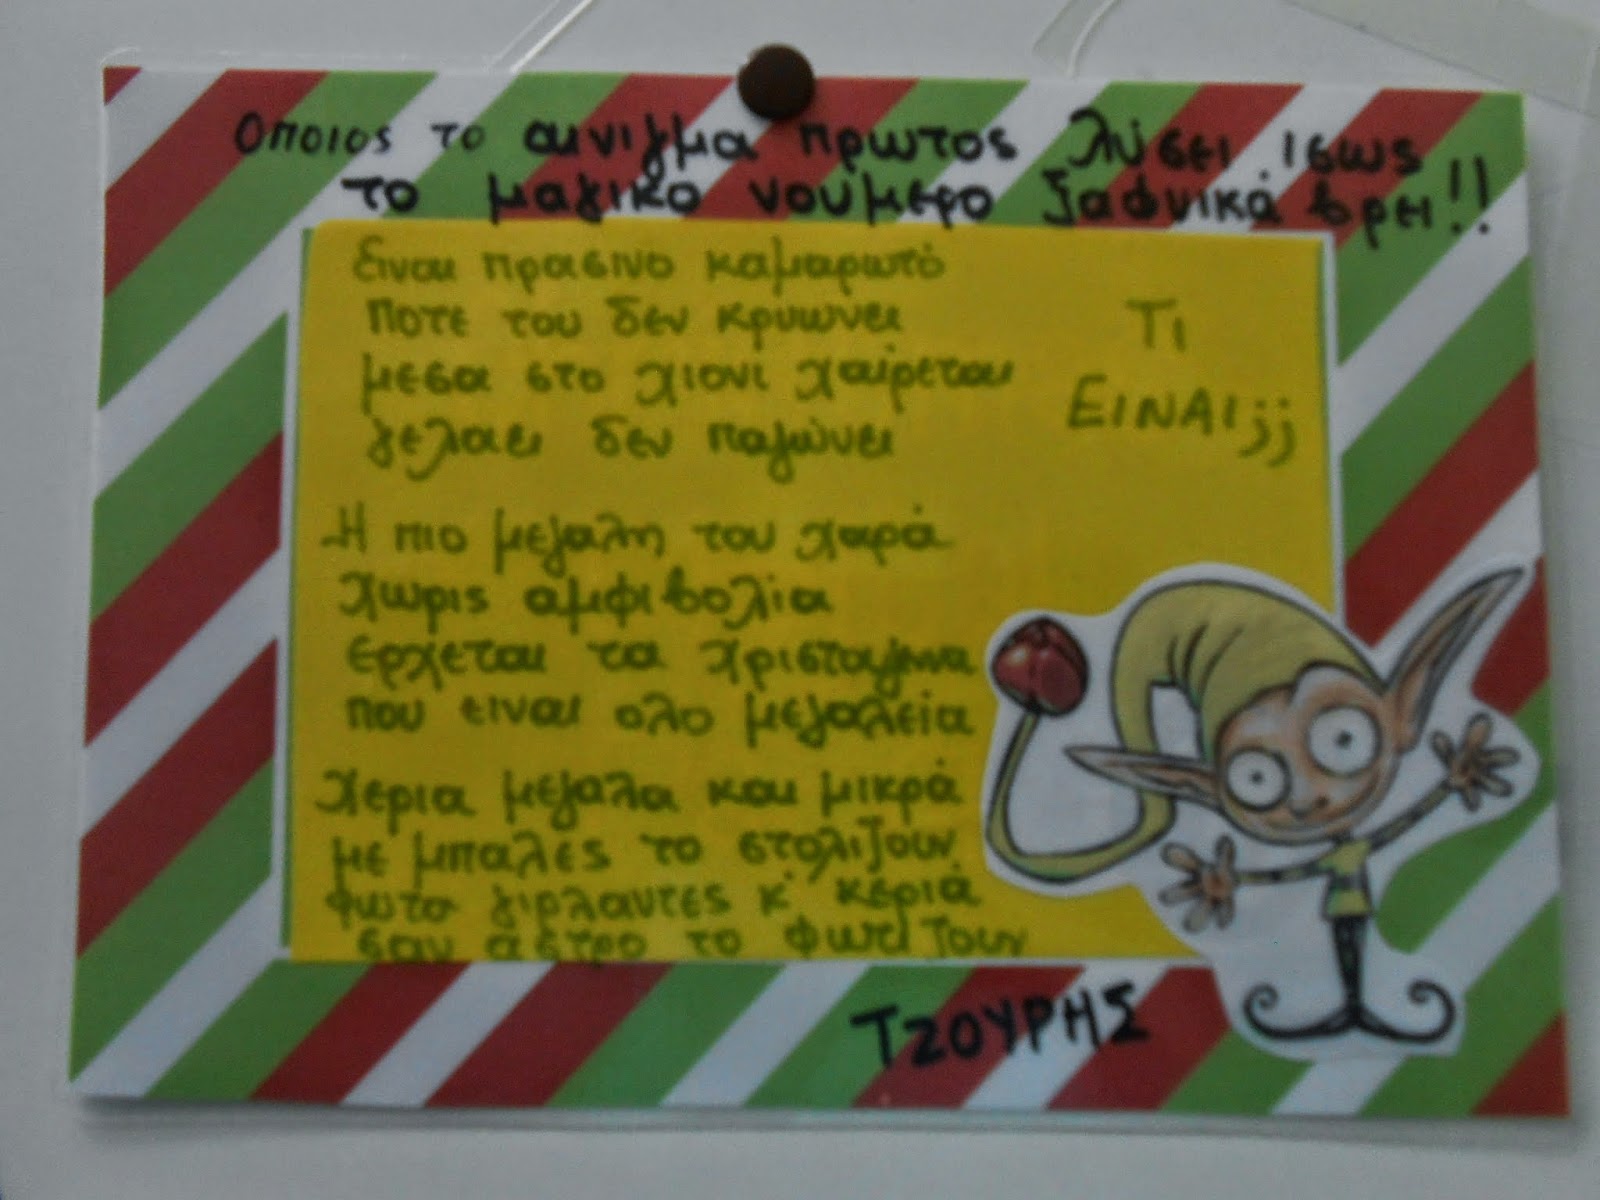 Οποιος το αινιγμα πρωτος λύσει, ισως
το μαγικο νουμερο ξαφνικά βρει!!
Ειναι πρασινο καμαρωτό
ποτε του δεν κρυωνει
μεσα στο χιονί χαίρεται
γελαει δεν παγώνει
ΤΙ
ΕΙΝΑΙ;;
Η πιο μεγαλη του χαρά
χωρις αμφιβολία
ερχεται τα χριστουγεννα
που ειναι ολο μεγαλεία
Χερια μεγαλα και μικρά
με μπαλες το στολιζουν
φωτα γιρλαντες κ' κεριά
σαν αστρο το φωτιζουν
ΤΖΟΥΡΗΣ